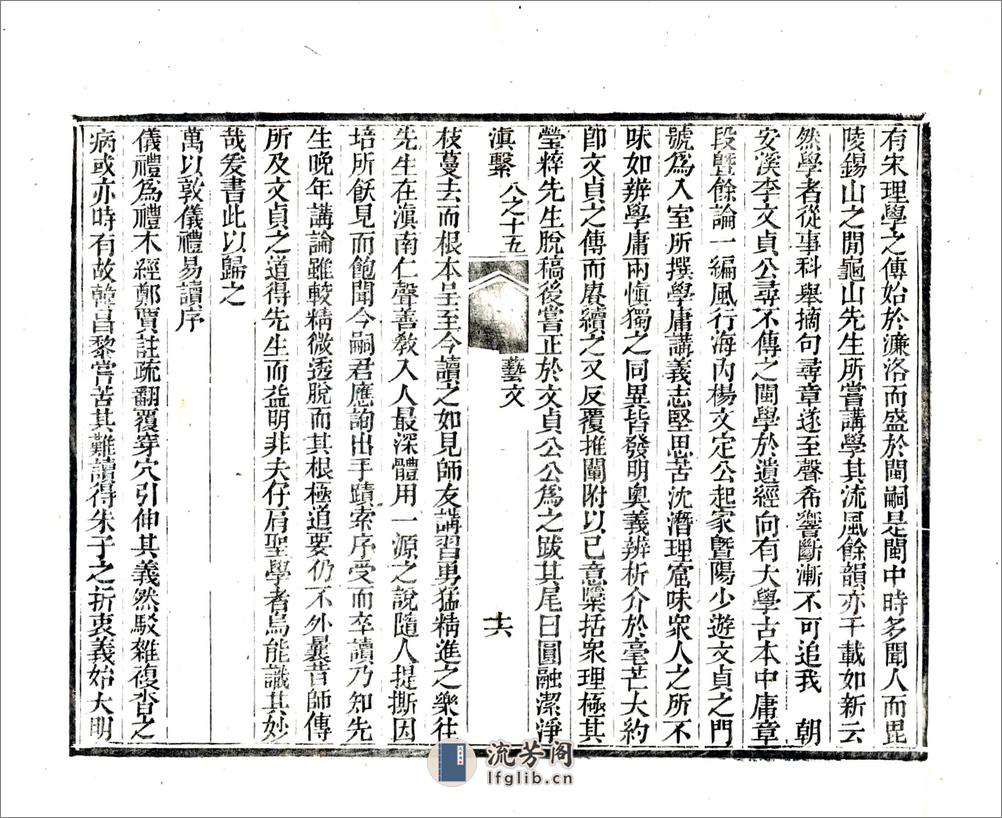 有宋理學之傳始於濂洛而盛於閩嗣是閩中時多聞人而毘
陵錫山之閒龜山先生所嘗講學其流風餘韻亦千載如新云
然學者從事科舉摘句尋章遂至聲希響斷漸不可追我 朝
安溪李文貞公尋不傳之閩學於遺經向有大學古本中庸章
段曁餘論一編風行海內楊文定公起家曁陽少遊文貞之門
號爲入室所撰學庸講義志堅思苦沈潛理窟味衆人之所不
味如辨學庸兩愼獨之同異皆發明奧義辨析介於毫芒大約
卽文貞之傳而賡續之又反覆推闡附以己意櫽括衆理極其
瑩粹先生脫稿後嘗正於文貞公公爲之跋其尾曰圓融潔淨
滇繫 八之十五 藝文 六
枝蔓去而根本呈至今讀之如見師友講習勇猛精進之樂往
先生在滇南仁聲善敎入人最深體用一源之說隨人提撕因
培所飫見而飽聞今嗣君應詢出手蹟索序受而卒讀乃知先
生晚年講論雖較精微透脫而其根極道要仍不外曩昔師傳
所及文貞之道得先生而益明非夫仔肩聖學者烏能識其妙
哉爰書此以歸之
萬以敦儀禮易讀序
儀禮爲禮木經鄭賈註疏翻覆穿穴引伸其義然駁雜複沓之
病或亦時有故韓昌黎嘗苦其難讀得朱子之折衷義始大明
流芳阁
lfglib.cn